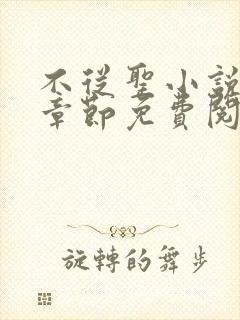 不從聖小說
章節免費閱
旋轉的舞步